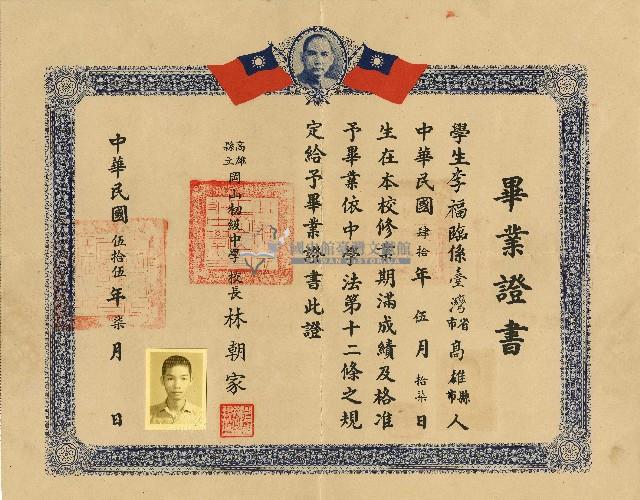 畢業證書
學生李福臨係臺灣省市高雄縣市人
中華民國肆拾年伍月拾柒日
生在本校修業期滿成績及格准
予畢業依中學法第十二條之規
定給予畢業證書此證
高雄縣立岡山初級中學校長林朝家
中華民國伍拾伍年柒月 日
國史館臺灣文獻館